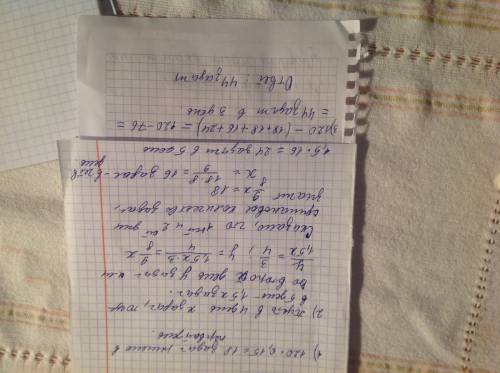 1) 120 · 0,15 = 18 задач решено в
первый день.
2) Пусть в 4 день x задач, тогда
в 5 день 1,5x задач.
Во второй день y задач
y/1,5x = 3/4 ; y = 1,5x·3/4 = 9/8 x
Сказано, что 1 и 2 дни
одинаковое количество задач,
значит
9/8 x = 18
x = 18·8/9 = 16 задач - в 4 день
1,5 · 16 = 24 задачи в 5 день
3) 120 - (18+18+16+24) = 120-76 =
= 44 задачи в 3 день
Ответ: 44 задачи